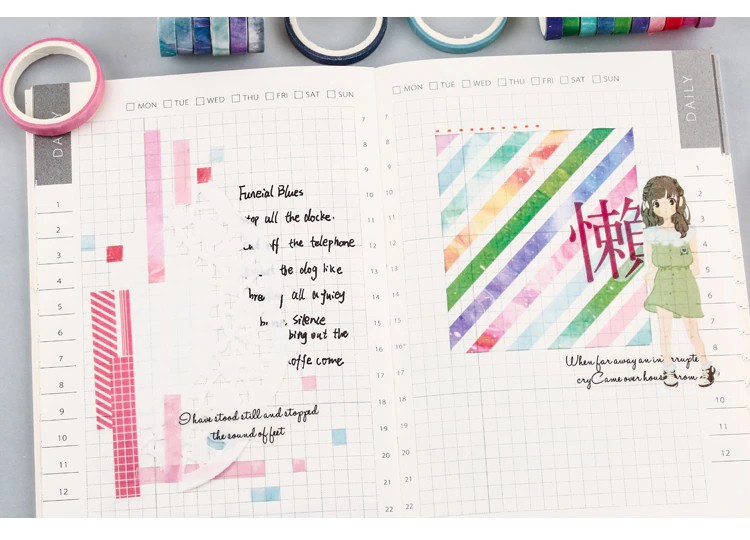 DAILY
MON TUE WED THU FRI SAT SUN
Funeial Blues
top all the clocke.
ff the telephone
the dog like
brea all a juicy
Silence
bing out the
offe come
I have stood still and stopped
the sound of feet
1
2
3
4
5
6
7
8
9
10
11
12
7
8
9
10
11
12
13
14
15
16
17
18
19
20
21
22
MON TUE WED THU FRI SAT SUN
DAILY
懶
When far away an in rrupte
cry Came over hous from
7
8
9
10
11
12
13
14
15
16
17
18
19
20
21
22
1
2
3
4
8
10
11
12